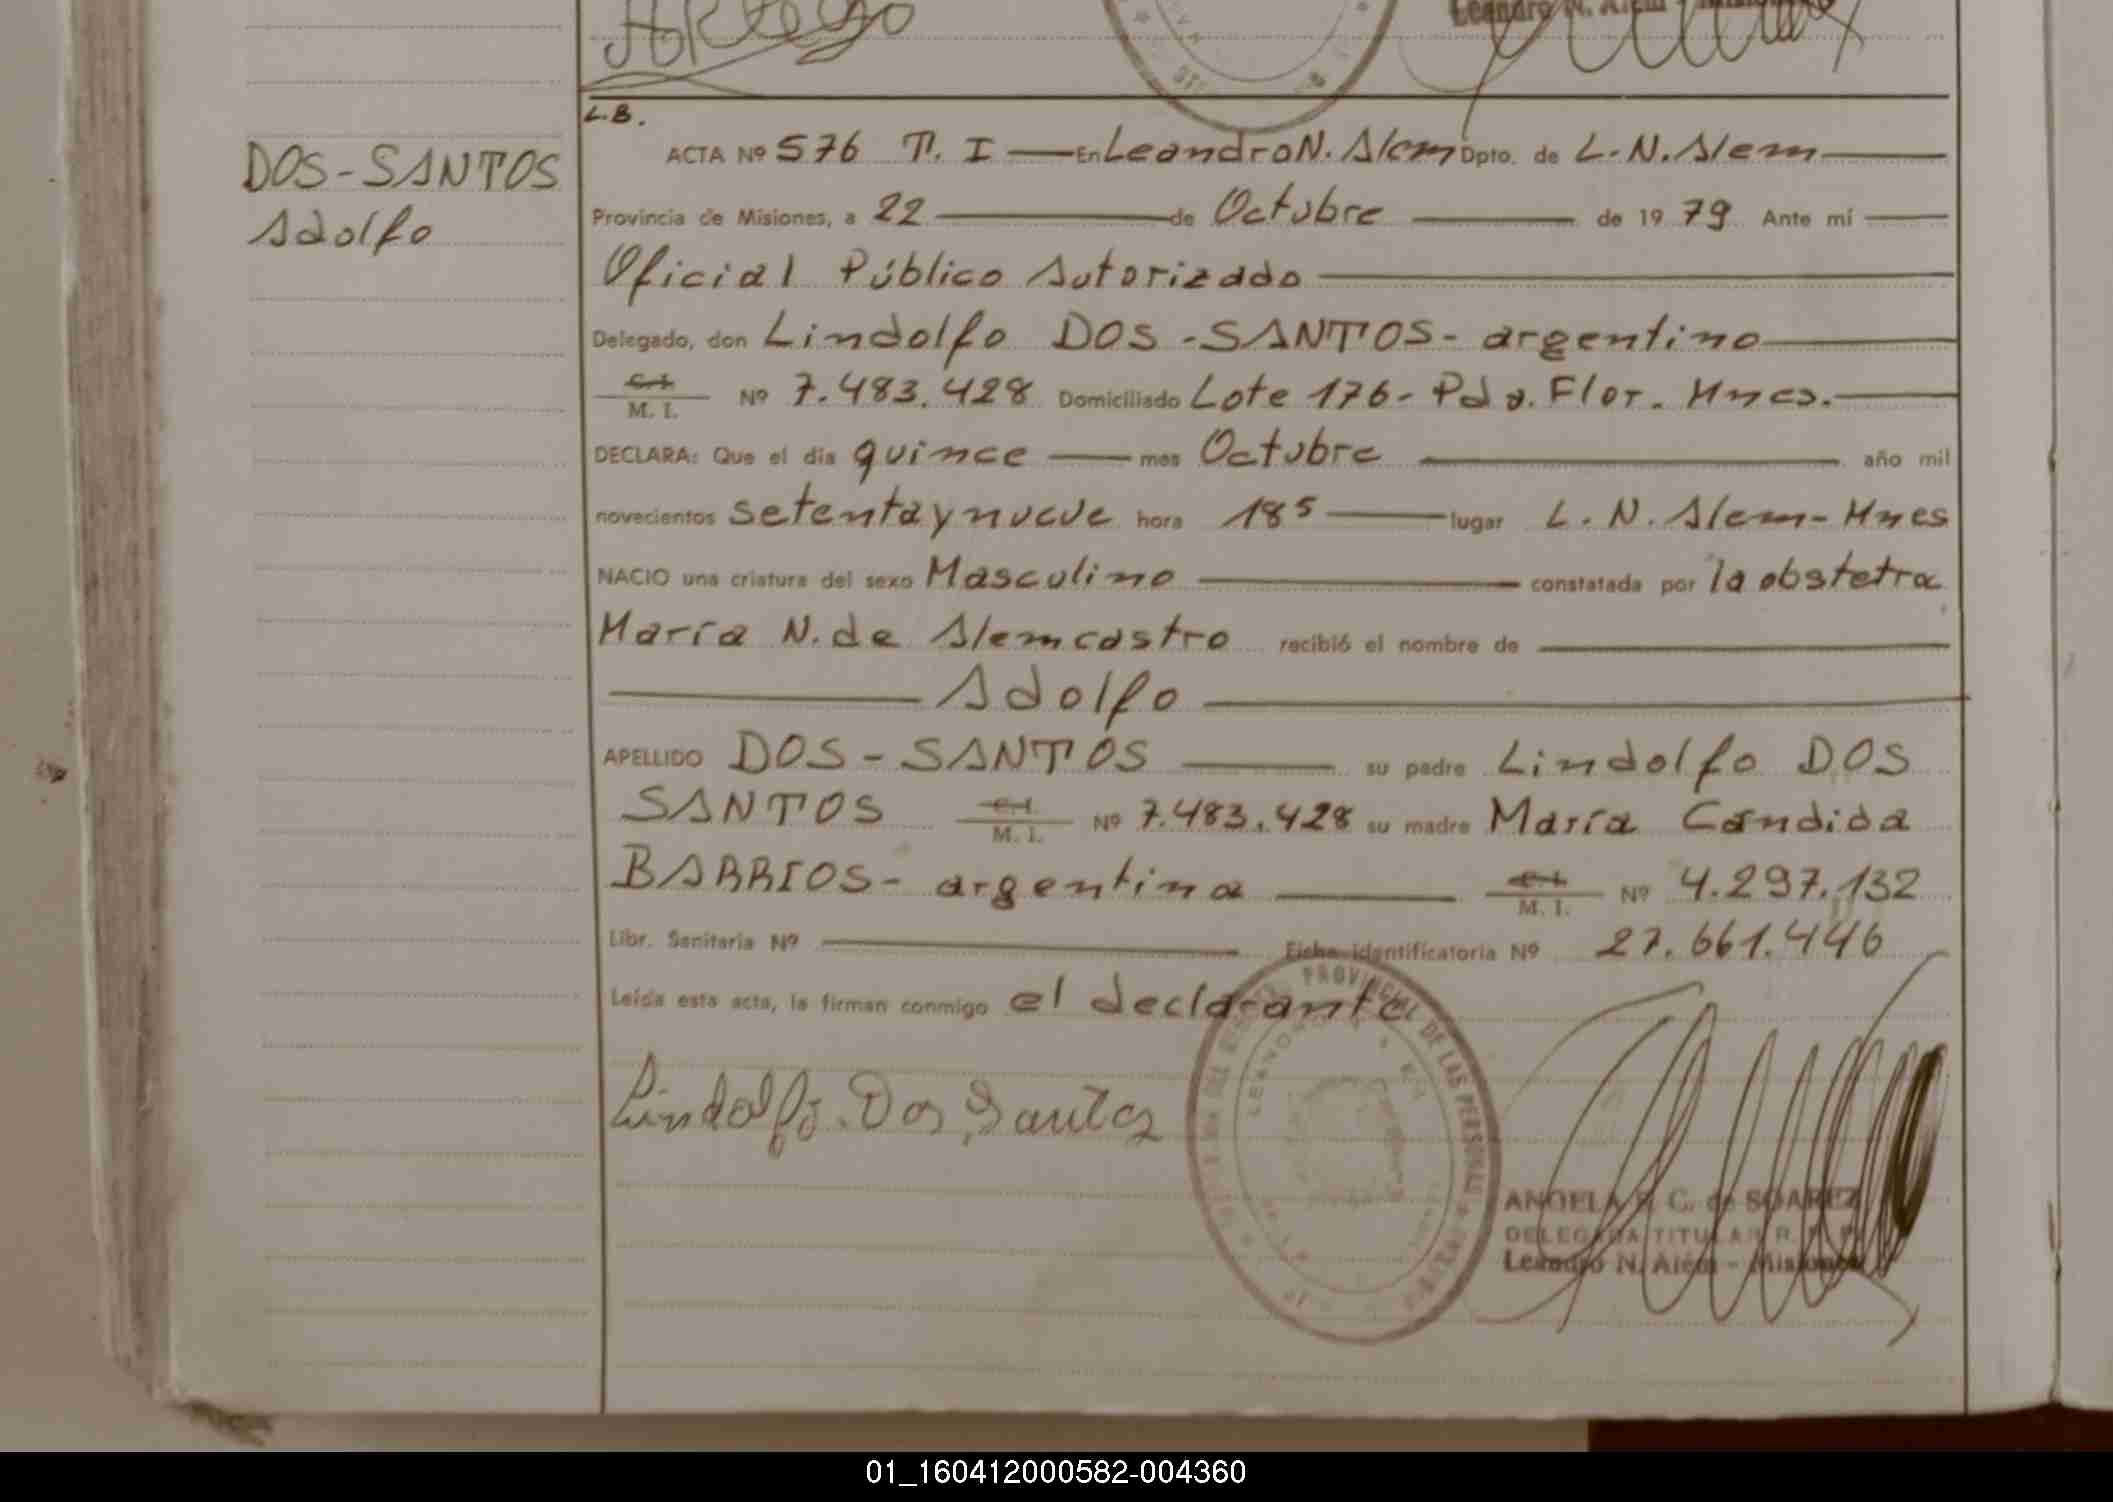 Leandro N. Alem - Misiones
L.B.
DOS-SANTOS
Adolfo
ACTA Nº 576 T. I — En Leandro N. Alem Dpto. de L. N. Alem
Provincia de Misiones, a 22 de Octubre de 1979 Ante mí
Oficial Público Autorizado
Delegado, don Lindolfo DOS-SANTOS- argentino
C. I.
M. I. Nº 7.483.428 Domiciliado Lote 176- Pda. Flor. Mnes.
DECLARA: Que el día quince mes Octubre año mil
novecientos setenta y nueve hora 18⁵ lugar L. N. Alem - Mnes
NACIO una criatura del sexo Masculino constatada por la obstetra
María N. de Alemcastro recibió el nombre de
Adolfo
APELLIDO DOS-SANTOS su padre Lindolfo DOS
SANTOS C. I. M. I. Nº 7.483.428 su madre María Candida
BARRIOS- argentina C. I. M. I. Nº 4.297.132
Libr. Sanitaria Nº Ficha identificatoria Nº 27.661.446
Leída esta acta, la firman conmigo el declarante
Lindolfo. Dos Santos
PROVINCIAL DE LAS PERSONAS
ANGELA C. de SOAREZ
DELEGADA TITULAR R.
Leandro N. Alem - Misiones
01_160412000582-004360